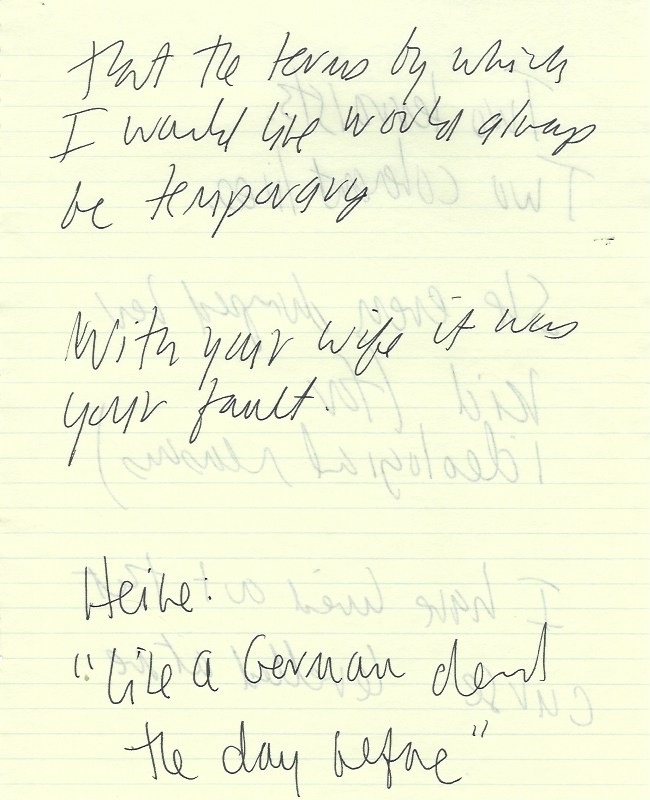 That the terms by which
I would live would always
be temporary
With your wife it was
your fault.
Heine:
"Like a German dead
the day before"